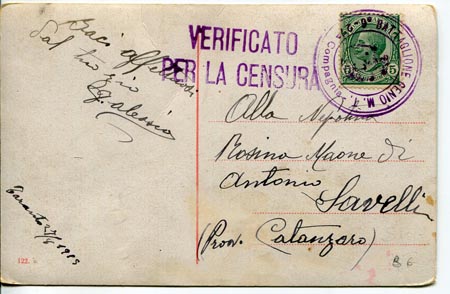 Baci affettuosi
dal tuo zio
Taranto 27/6 1915
VERIFICATO
PER LA CENSURA
BATTAGLIONE GENIO M. T.
Compagnia
5
Alla Nipotina
Rosina Maone di
Antonio
Savelli
(Prov. Catanzaro)
123.
B 6